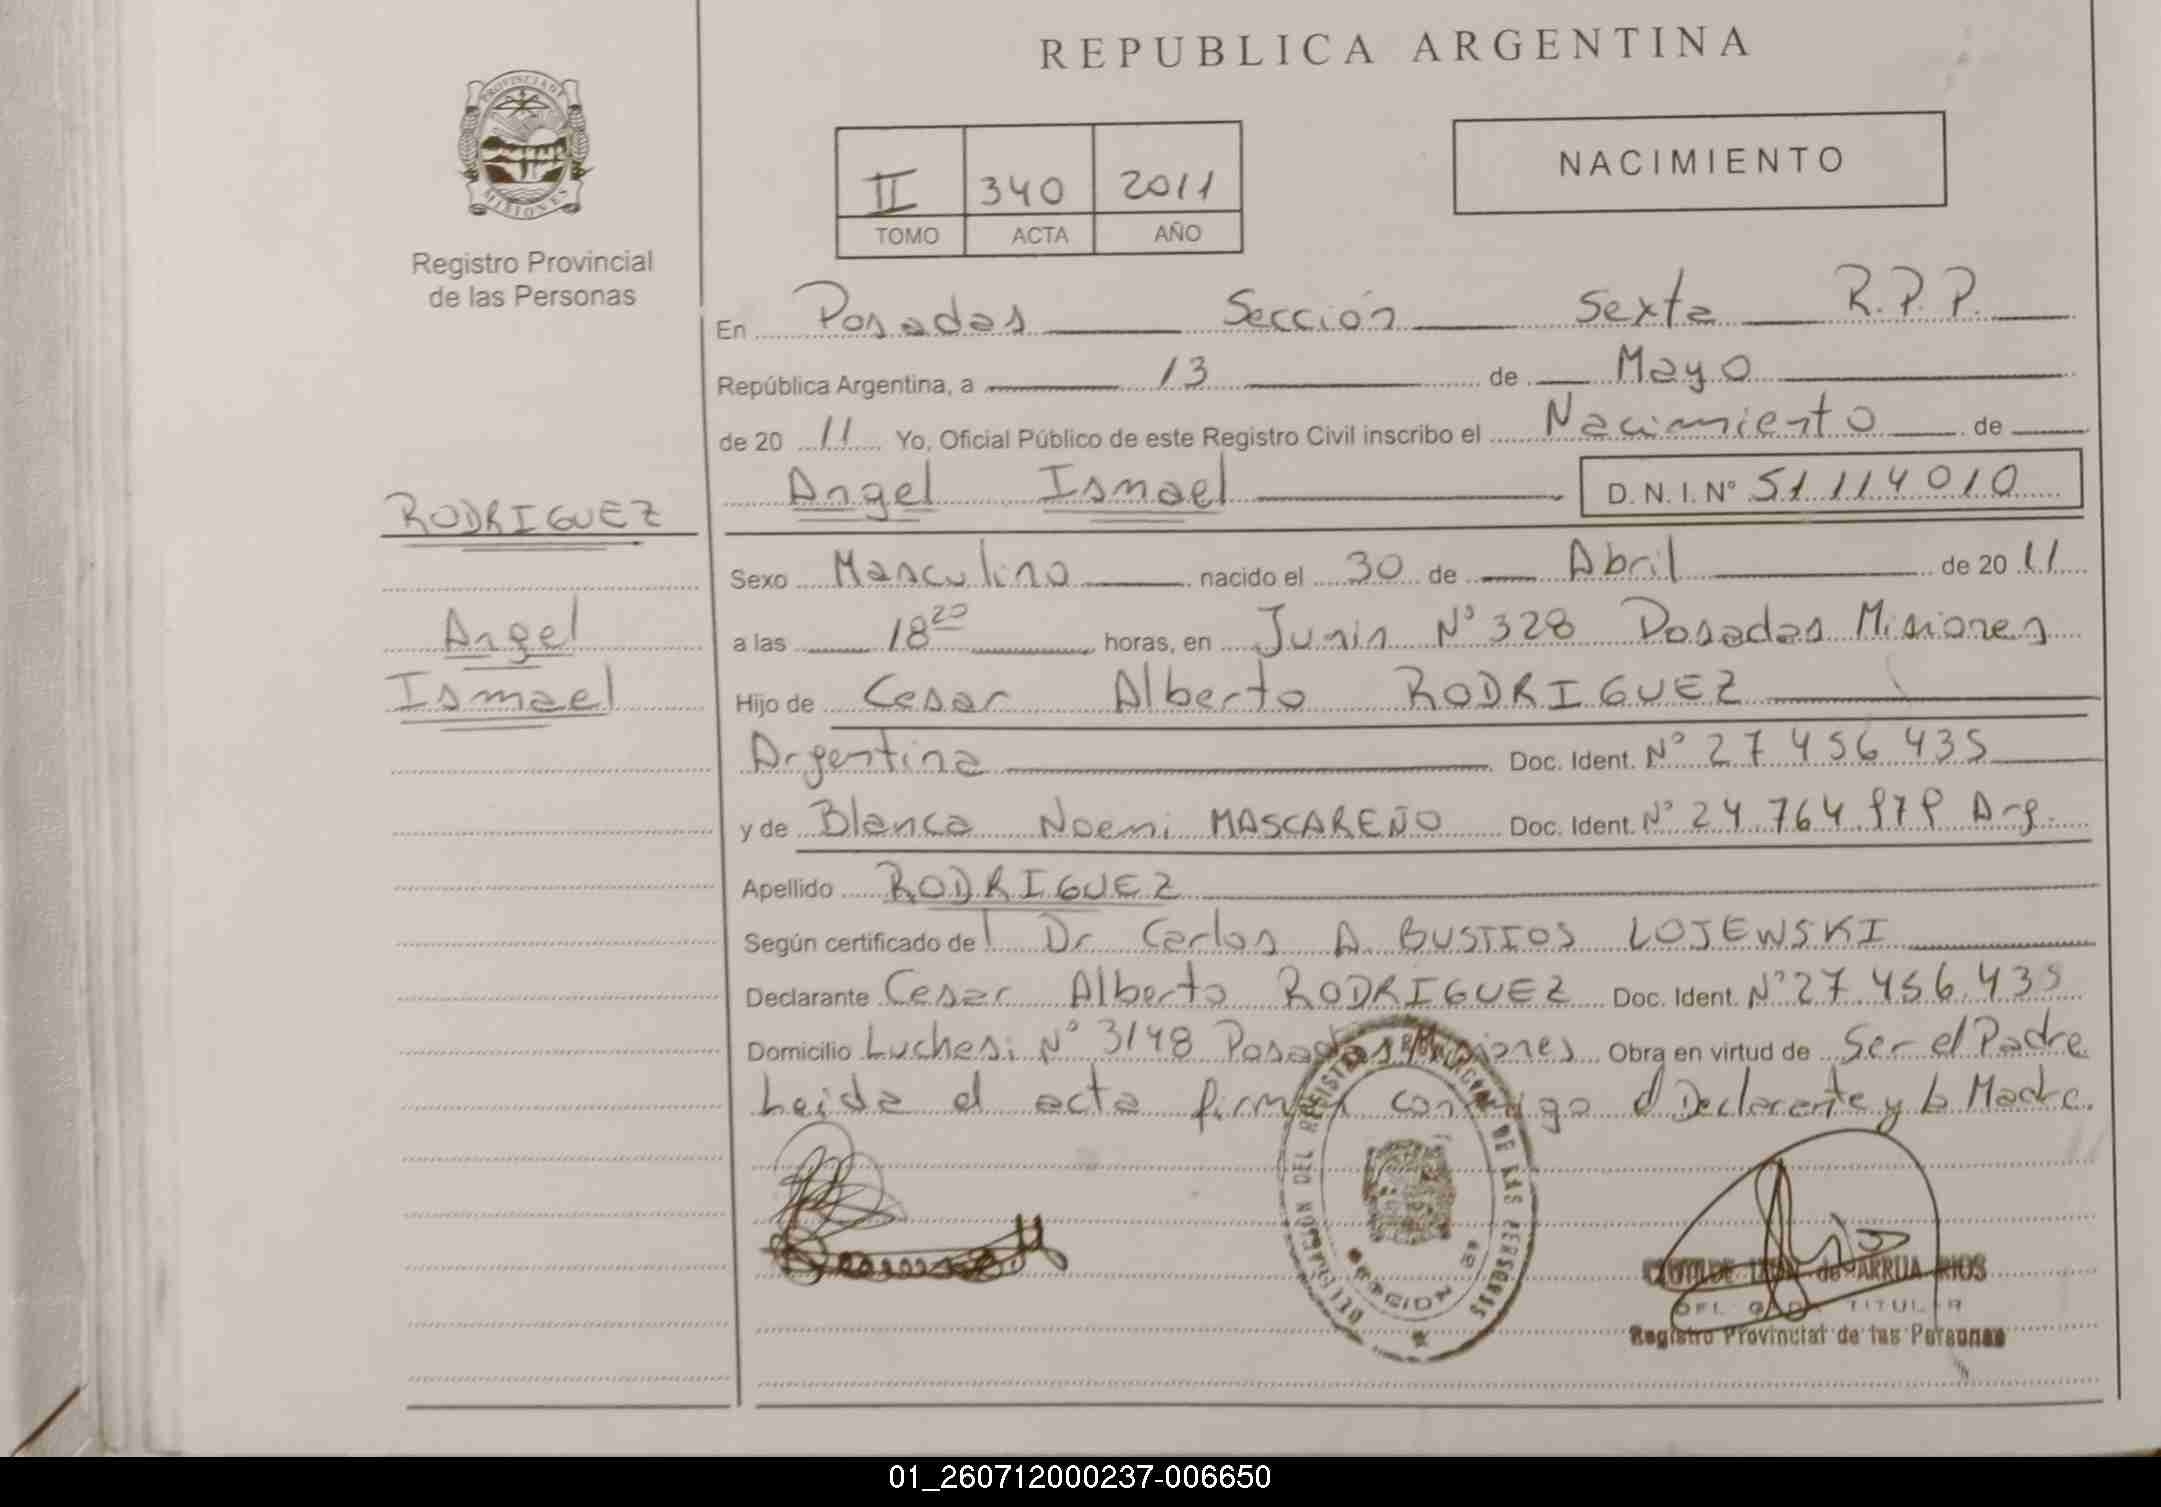 REPUBLICA ARGENTINA
PROVINCIA DE
MISIONES
Registro Provincial
de las Personas
II 340 2011
TOMO ACTA AÑO
NACIMIENTO
En Posadas Sección Sexta R.P.P.
República Argentina, a 13 de Mayo
de 20 11 Yo, Oficial Público de este Registro Civil inscribo el Nacimiento de
Angel Ismael D. N. I. Nº 51.114.010
RODRIGUEZ
Angel
Ismael
Sexo Masculino nacido el 30 de Abril de 20 11
a las 18 20 horas, en Junin Nº 328 Posadas Misiones
Hijo de Cesar Alberto RODRIGUEZ
Argentina Doc. Ident. Nº 27.456.435
y de Blanca Noemi MASCAREÑO Doc. Ident. Nº 24.764.979 Arg.
Apellido RODRIGUEZ
Según certificado del Dr Carlos A BUSTIOS LOJEWSKI
Declarante Cesar Alberto RODRIGUEZ Doc. Ident. Nº 27.456.435
Domicilio Luchesi Nº 3148 Posadas Misiones Obra en virtud de Ser el Padre
Leida el acta firman conmigo el Declarante y la Madre.
DELEGACION DEL REGISTRO PROVINCIAL DE LAS PERSONAS
SECCION
de ARRUA RIOS
TITULAR
Registro Provincial de las Personas
01_260712000237-006650